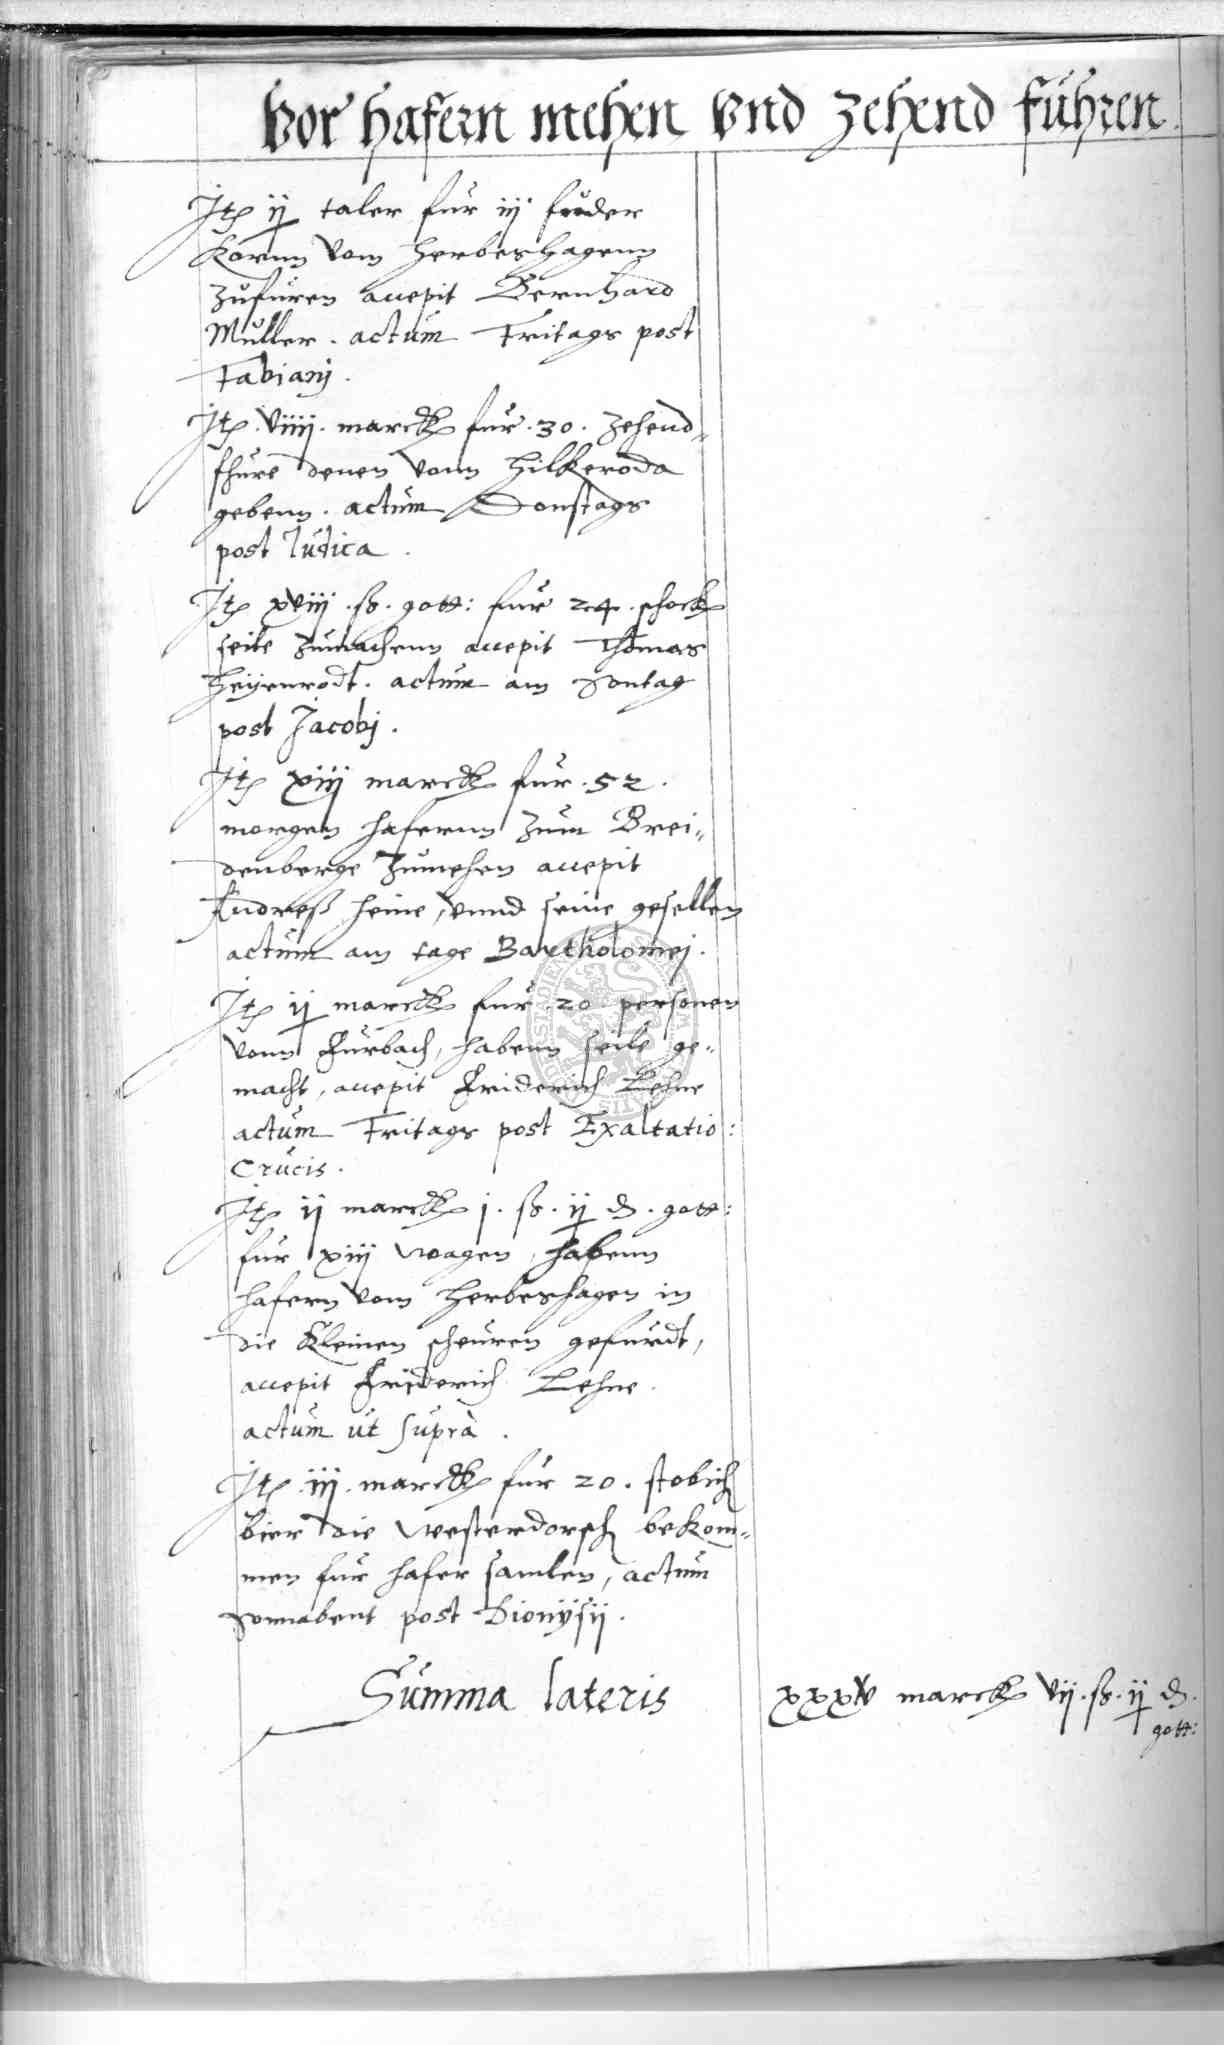 Vor hafern mehen vnd zehend führen.
Jtem ij taler fur iij fuder
Kornn vom Herbeshagenn
zufuren accepit Bernhard
Muller. actum Fritags post
Fabianj.
Jtem. viiij. marck fur. 30. zehend„
fhure denen vonn Hilkeroda
gebenn. actum Donstags
post Iudica.
Jtem xviij. ß. gott: fur 24. schock
seile zumachenn accepit Thomas
Heyenrodt. actum am Sontag
post Jacobj.
Jtem xiij marck fur. 52.
morgen hafernn zum Brei„
denberge zumehen accepit
Andreß Heine, vnnd seine gesellen
actum am tage Bartholomej.
Jtem ij marck fur. 20 personen
vonn Furbach, habenn seile ge„
macht, accepit Friderich Lehne
actum Fritags post Exaltatio:
Crucis.
Jtem ij marck j. ß. ij d. gott:
fur xiij wagen, habenn
hafern vom Herbeshagen in
die Kleinen scheuren gefurdt,
accepit Friderich Lehne.
actum ut supra.
Jtem. iij. marck fur 20. stobich
bier die Westerdorsch bekom„
men fur hafer samlen, actum
Sonnabent post Dionysij.
Summa lateris xxxiv marck vij. ß. ij d.
gott: